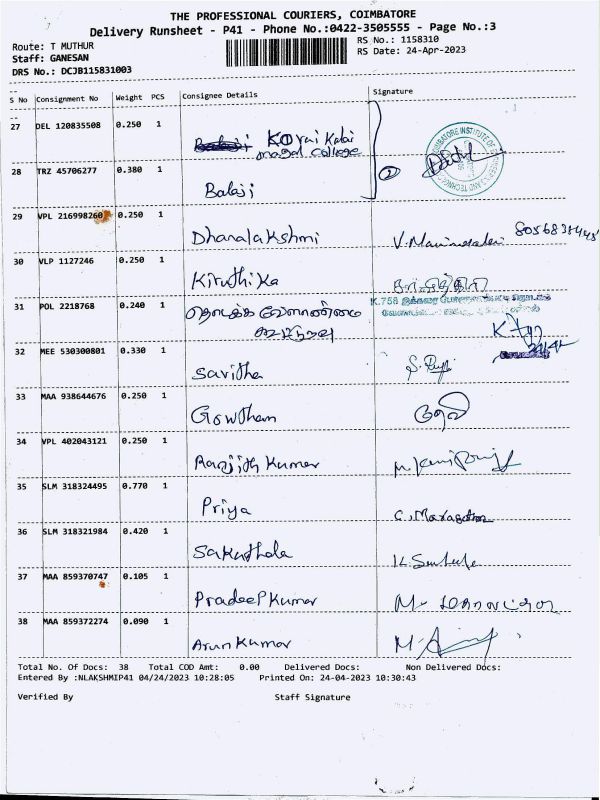 THE PROFESSIONAL COURIERS, COIMBATORE
Delivery Runsheet - P41 - Phone No.:0422-3505555 - Page No.:3
Route: T MUTHUR
RS No.: 1158310
Staff: GANESAN
RS Date: 24-Apr-2023
DRS No.: DCJB115831003
S No Consignment No Weight PCS Consignee Details Signature
27 DEL 120835508 0.250 1 Balaji Kovai Kalai
magal college
28 TRZ 45706277 0.380 1 Balaji
29 VPL 216998260 0.250 1 Dhanalakshmi
30 VLP 1127246 0.250 1 Kiruthika
31 POL 2218768 0.240 1 தொடக்க வேளாண்மை
32 MEE 530300801 0.330 1 Savitha
33 MAA 938644676 0.250 1 Gowtham தேவி
34 VPL 402043121 0.250 1 Ranjith Kumar
35 SLM 318324495 0.770 1 Priya
36 SLM 318321984 0.420 1
37 MAA 859370747 0.105 1 Pradeep Kumar
38 MAA 859372274 0.090 1 Arun Kumar
Total No. Of Docs: 38 Total COD Amt: 0.00 Delivered Docs: Non Delivered Docs:
Entered By :NLAKSHMIP41 04/24/2023 10:28:05 Printed On: 24-04-2023 10:30:43
Verified By Staff Signature